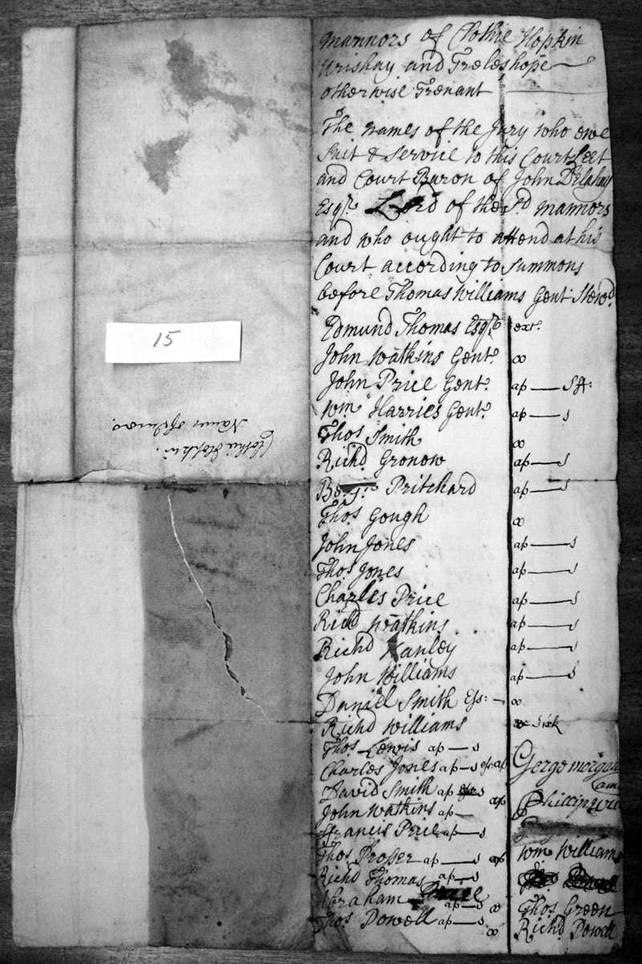 mannors of Clothie Hopkin
Urishay and Treleshope
otherwise Trenant
The names of the Jury who owe
Suit & Service to this Court Leet
and Court Baron of John Delahay
Esqr. Lord of the sd mannors
and who ought to attend at his
Court according to Summons
before Thomas Williams Gent Stewd.
Edmund Thomas Esqr.
John Watkins Gent. ∞
John Price Gent. ap
Wm Harries Gent. ap—s
Thos Smith ∞
Richd Gronow ap—s
Pritchard ap—s
Thos Gough ∞
John Jones ap—s
Thos Jones ap—s
Charles Price ap—s
Richd Watkins ap—s
Richd Hanley ap—s
John Williams ap—s
Daniel Smith ∞
Richd Williams sick
Thos Lewis ap—s
Charles Jones ap—s
David Smith ap
John Watkins ap—
Francis Price ap—s
Thos Proser ap—s
Richd Thomas ap—s
Abraham ap—s ∞
Thos Powell ap—s ∞
Wm Williams
Thos Green
Richd Powell
15
Clothie Hopkin.